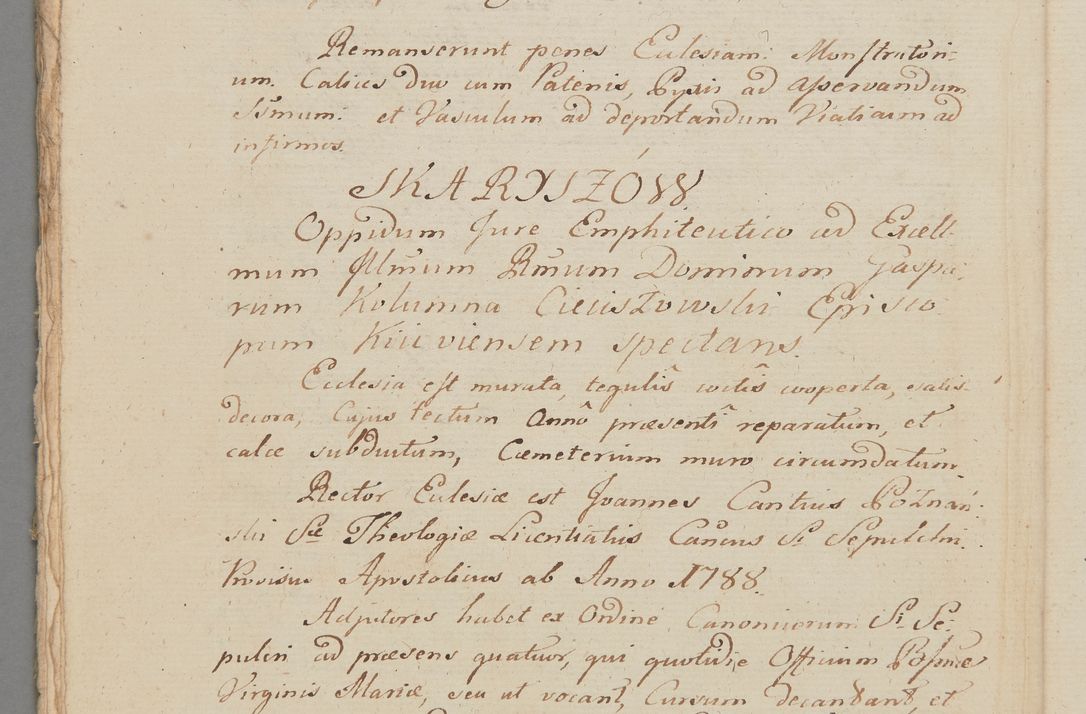 Remanserunt penes Ecclesiam: Monstratori-
um. Calices duo cum Patenis, Pyxis ad asservandum
SSmum: et Vasculum ad deportandum Viaticum ad
infirmos.
SKARYSZÓW
Oppidum Jure Emphiteutico ad Excell-
mum Illmum Rmum Dominum Gaspa-
rum Kolumna Cieciszowski Episco
pum Kiioviensem spectans.
Ecclesia est murata, tegulis coctis cooperta, satis
decora, Cujus tectum Anno præsenti reparatum, et
calce subductum, Cæmeterium muro circumdatum
Rector Ecclesiæ est Joannes Cantius Poznań-
ski Sæ Theologiæ Licentiatus Cancus Si Sepulchri.
Provisus Apostolicus ab Anno 1788.
Adjutores habet ex Ordine Canonicorum Si Se-
pulcri ad præsens quatuor, qui quotidie Officium BSsmæ
Virginis Mariæ, seu ut vocant, Cursum decantant, et